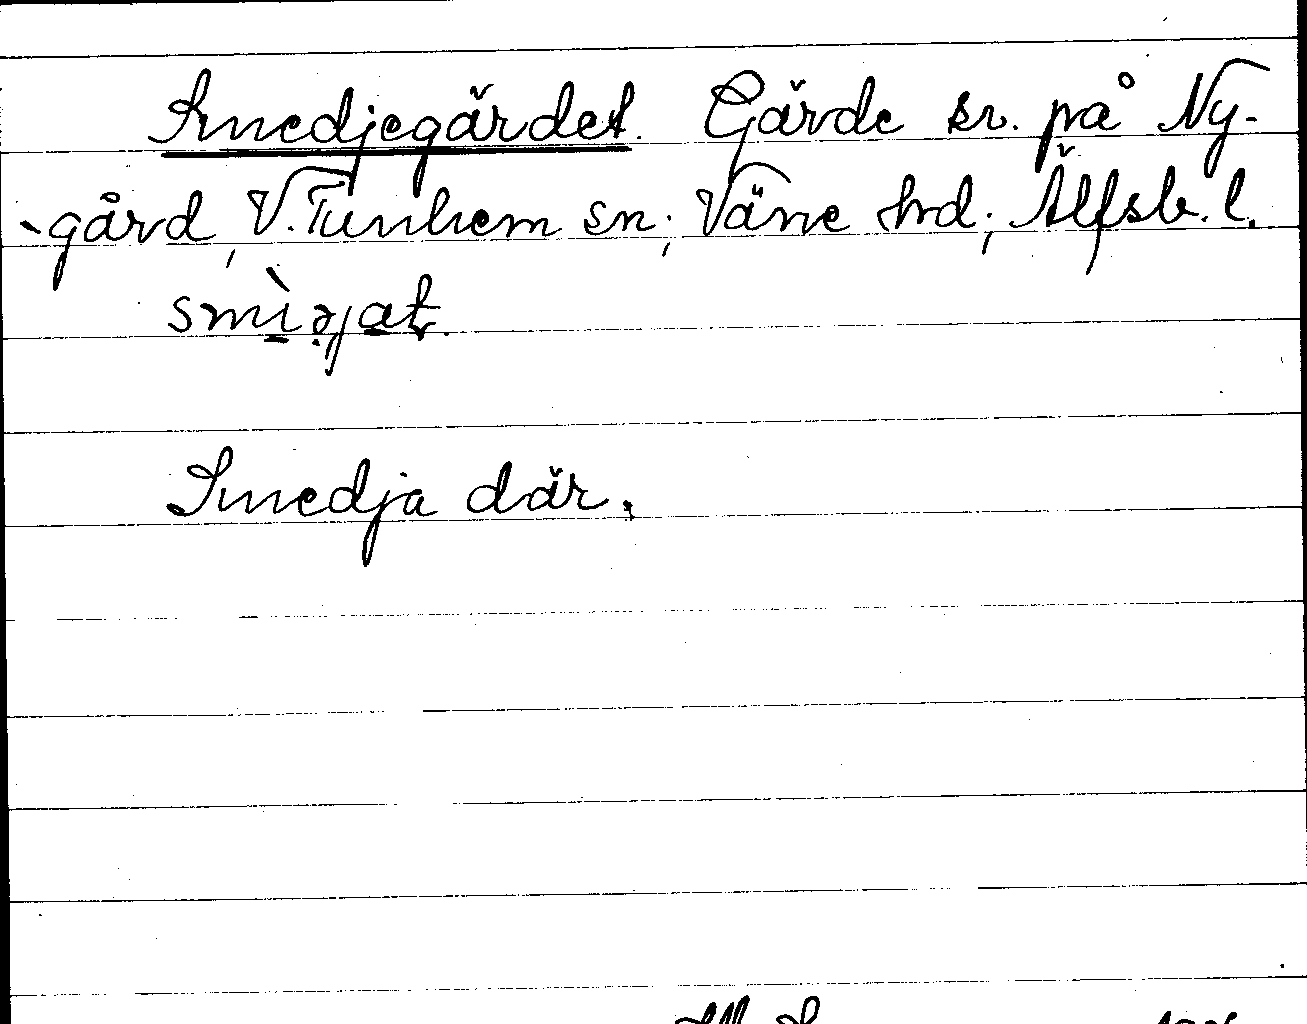 Smedjegärdet. Gärde sv. på Ny-
-gård, V. Tunhem sn; Väne hd; Älfsb. l.
smìəjat.
Smedja där.